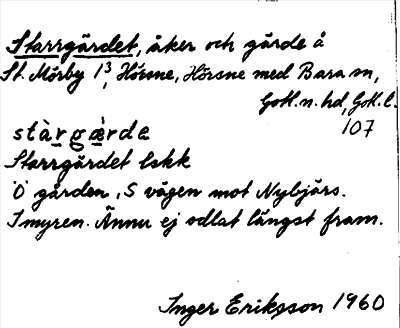 Starrgärdet, åker och gärde å
St. Mörby 1³, Hörsne, Hörsne med Bara sn,
Gotl. n. hd, Gotl. l.
107
stàrgæ̀rde
Starrgärdet lskk
Ö gården, S vägen mot Nybjärs.
I myren. Ännu ej odlat längst fram.
Inger Eriksson 1960